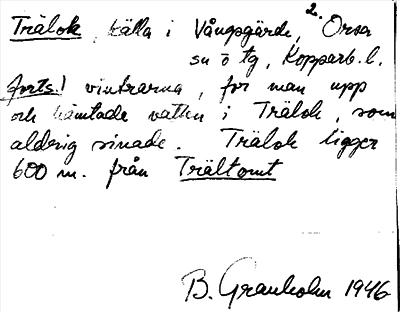 2.
Trälok, källa i Vångsgärde, Orsa
sn ö tg, Kopparb. l.
forts.) vintrarna, for man upp
och hämtade vatten i Trälok, som
aldrig sinade. Trälok ligger
600 m. från Trältomt
B. Granholm 1946